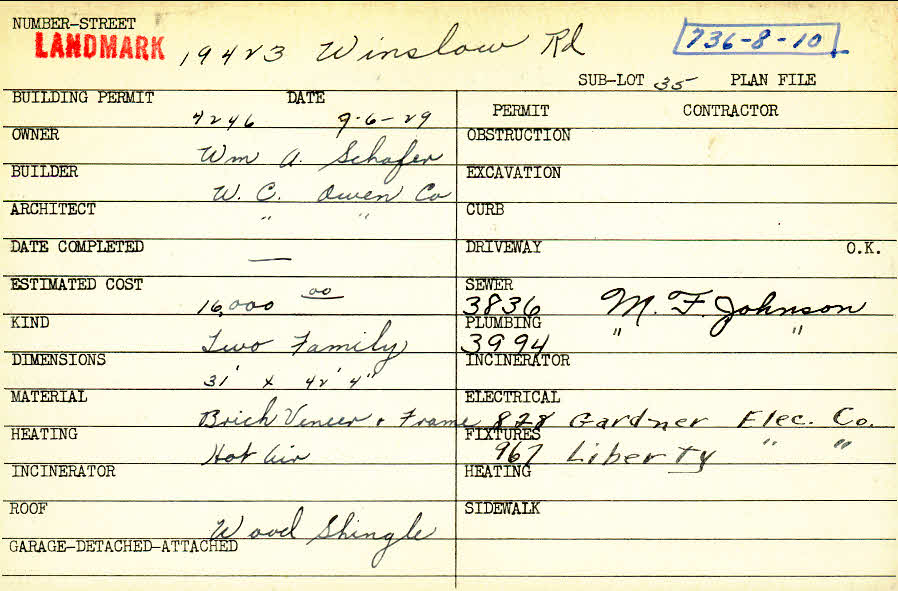 NUMBER-STREET
LANDMARK 19423 Winslow Rd 736-8-10
SUB-LOT 35 PLAN FILE
BUILDING PERMIT DATE
4246 9-6-29
PERMIT CONTRACTOR
OWNER
Wm A. Schafer
OBSTRUCTION
BUILDER
W. C. Owen Co
EXCAVATION
ARCHITECT
" "
CURB
DATE COMPLETED
—
DRIVEWAY O.K.
ESTIMATED COST
16,000 00
SEWER
3836 M. F. Johnson
KIND
Two Family
PLUMBING
3994 " "
DIMENSIONS
31' x 42' 4"
INCINERATOR
MATERIAL
Brick Veneer + Frame
ELECTRICAL
828 Gardner Elec. Co.
HEATING
Hot Air
FIXTURES
967 Liberty " "
INCINERATOR
HEATING
ROOF
Wood Shingle
SIDEWALK
GARAGE-DETACHED-ATTACHED